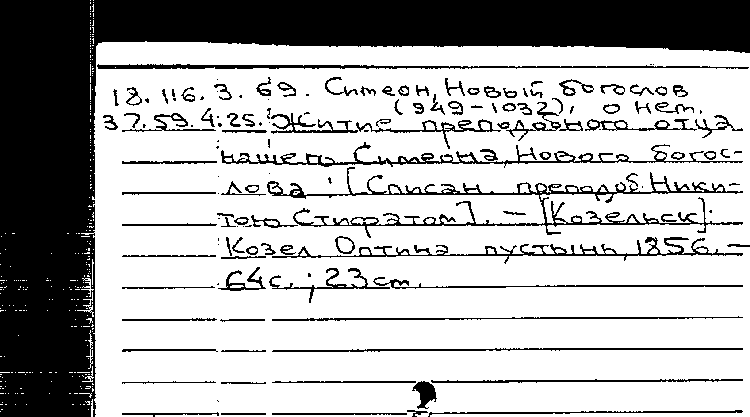 18.116.3.69. Симеон, Новый богослов
(949-1032), о нем.
37.59.4.25. Житие преподобного отца
нашего Симеона, Нового богос-
лова : [Списан. преподоб. Ники-
тою Стифатом]. — [Козельск]:
Козел. Оптина пустынь, 1856. —
64с. ; 23 см.